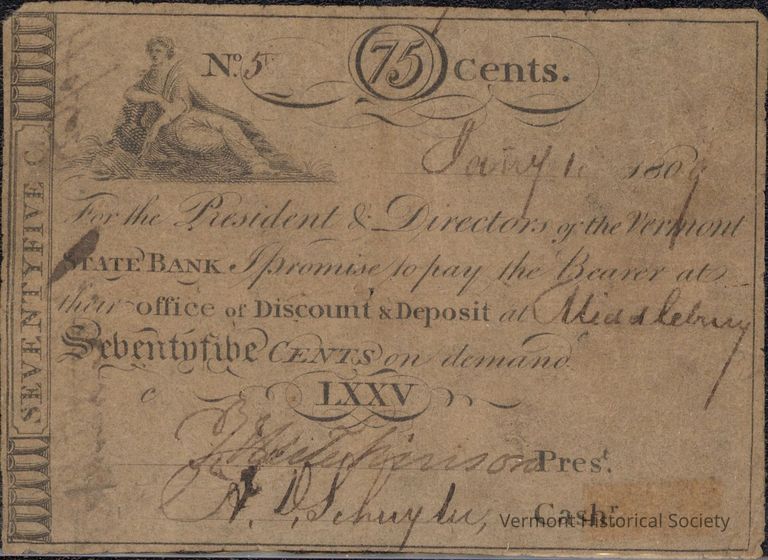 No. 5 75 Cents.
Jany 1 180
For the President & Directors of the Vermont
STATE BANK I promise to pay the Bearer at
their office of Discount & Deposit at Middlebury
Seventyfive CENTS on demand
C LXXV
Hutchinson Prest.
N. D. Schuyler, Cashr
SEVENTYFIVE C.
Vermont Historical Society